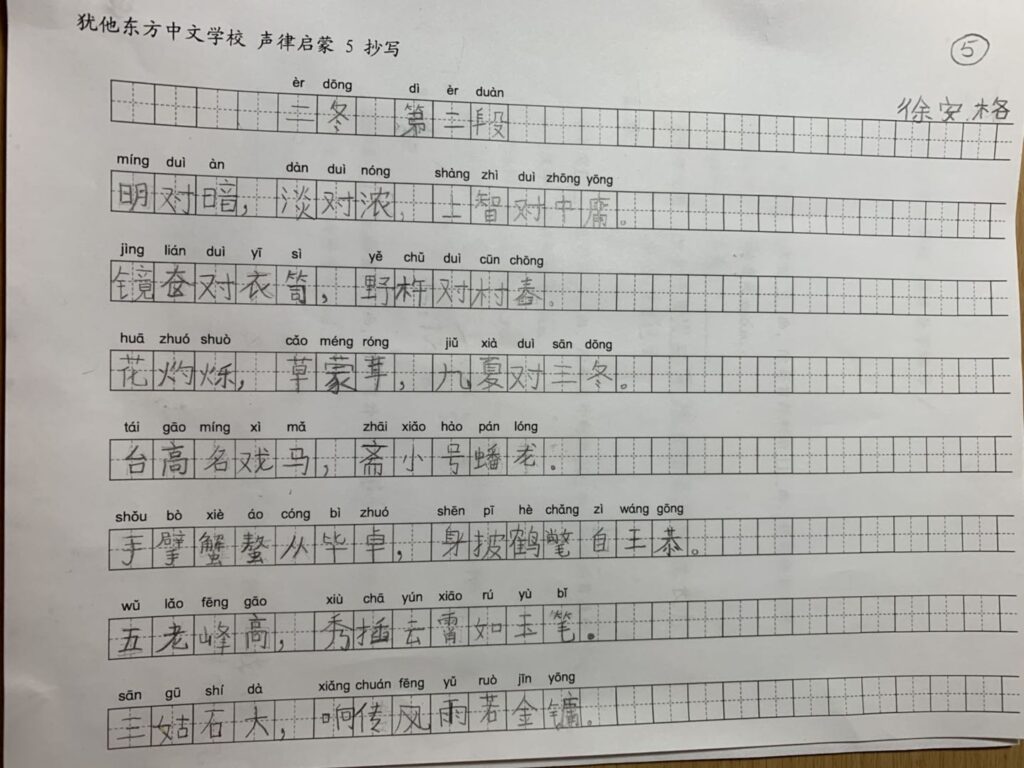 犹他东方中文学校 声律启蒙 5 抄写
5
徐安格
èr dōng dì èr duàn
二冬 第二段
míng duì àn dàn duì nóng shàng zhì duì zhōng yōng
明对暗，淡对浓，上智对中庸。
jìng lián duì yī sì yě chǔ duì cūn chōng
镜奁对衣笥，野杵对村舂。
huā zhuó shuò cǎo méng róng jiǔ xià duì sān dōng
花灼烁，草蒙茸，九夏对三冬。
tái gāo míng xì mǎ zhāi xiǎo hào pán lóng
台高名戏马，斋小号蟠龙。
shǒu bò xiè áo cóng bì zhuó shēn pī hè chǎng zì wáng gōng
手擘蟹螯从毕卓，身披鹤氅自王恭。
wǔ lǎo fēng gāo xiù chā yún xiāo rú yù bǐ
五老峰高，秀插云霄如玉笔。
sān gū shí dà xiǎng chuán fēng yǔ ruò jīn yōng
三姑石大，响传风雨若金镛。